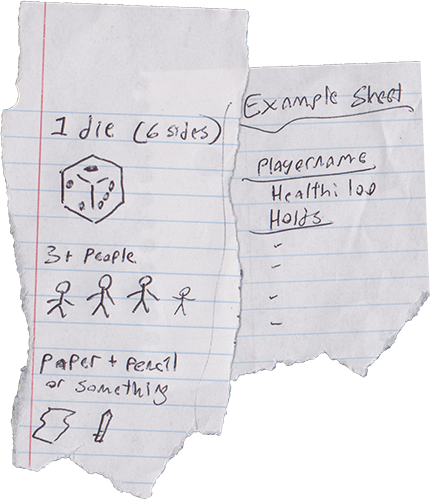 1 die (6 sides)
3+ people
paper + pencil
or something
Example Sheet
Playername
Health: 100
Holds
-
-
-
-